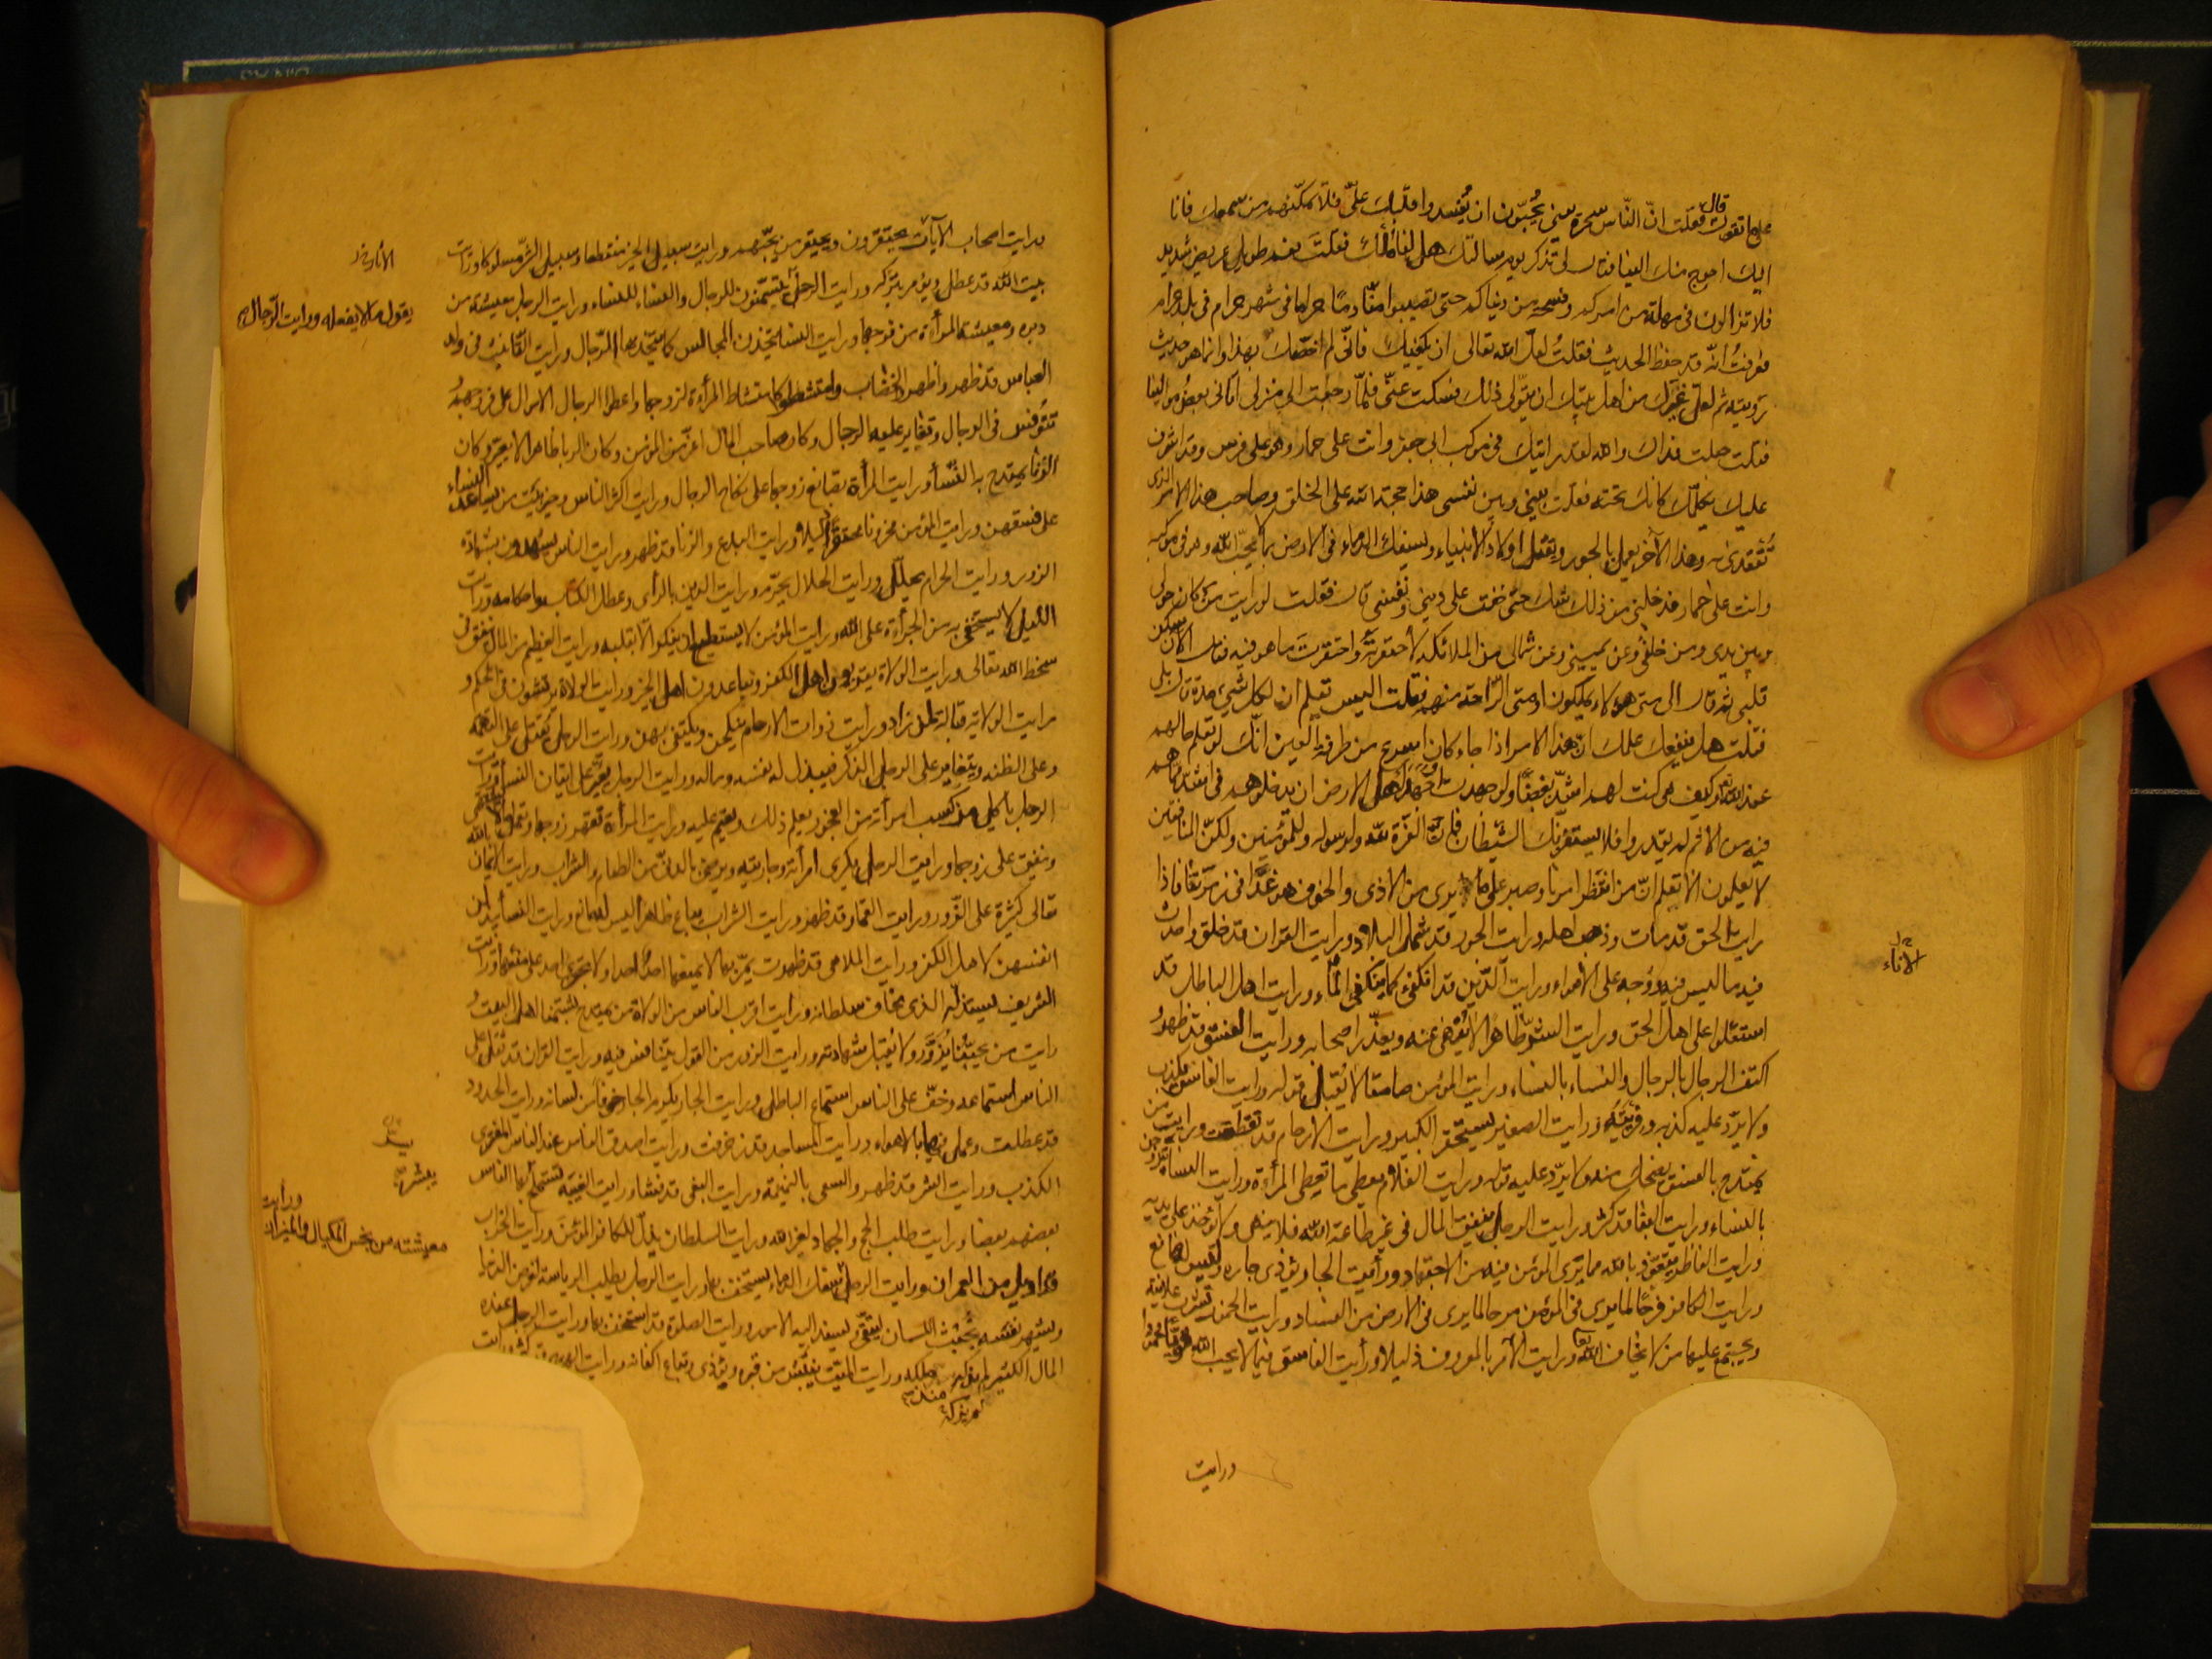 على ما تقول قال فقلت ان النّاس سحرة يعنى يحبّون ان يفسدوا قلبك علىّ فلا تمكّنهم من سمعك فانا
اليك احوج منك الينا فقال لى تذكر يوم سالتك هل لنا ملك فقلت نعم طويل عريض شديد
فلا تزالون فى مهلة من امركم وفسحة من دنياكم حتى تصيبوا منّا دمًا حراما فى شهر حرام فى بلد حرام
فعرفتُ انّه قد حفظ الحديث فقلتُ لعلّ الله تعالى ان يكفيك فانّى لم اخصّك بهذا وانما هو حديث
رويته ثم لعل غيرك من اهل بيتك ان يتولّى ذلك فسكت عنّى فلمّا رجعت الى منزلى اتانى بعض موالينا
فقلت جعلت فداك والله لقد رايتك فى موكب ابى جعفر وانت على حمار وهو على فرس وقد اشرف
عليك يكلّمك كانك تحته فقلت بينى وبين نفسى هذا حجة الله على الخلق وصاحب هذا الامر الذى
يُقتدى به وهذا الآخر يعمل بالجور ويقتل اولاد الانبياء ويسفك الدماء فى الارض بما لا يحبّ الله وهو فى موكبه
وانت على حمار فدخلنى من ذلك شك حتى خفت على دينى ونفسى قال فقلت لو رايت من كان حولى
وبين يدى ومن خلفى وعن يمينى وعن شمالى من الملائكه لاحتقرته واحتقرت ما هو فيه فقال الآن سكن
قلبى ثم قال الى متى هولاء يملكون او متى الرّاحة منهم فقلت اليس تعلم ان لكل شىء مدة قال بلى
فقلت هل ينفعك علمك ان هذا الامر اذا جاء كان اسرع من طرفة العين انّك لو تعلم حالهم
عند الله تعالى وكيف هى كنت لهم اشدّ بغضًا ولو جهدت وجهد اهل الارض ان يدخلوهم فى اشد ما هم
فيه من الاثم لم يقدروا فلا يستفزنّك الشيطان فان العزة لله ولرسوله وللمؤمنين ولكنّ المنافقين
لا يعلمون الا تعلم انّ من انتظر امرنا وصبر على ما يرى من الاذى والخوف هو غدًا فى زمرتنا فاذا
رايت الحق قد مات وذهب اهله ورايت الجور قد شمل البلاد ورايت القران قد خلق واحدث
فيه ما ليس فيه ووجه على الاهواء ورايت الدّين قد انكفى كما ينكفى الماء ورايت اهل الباطل قد
الاناء خ ل
استعلوا على اهل الحق ورايت الشرّ ظاهرا لا يُنهى عنه ويعذّر اصحابه ورايت الفسق قد ظهر و
اكتفى الرجال بالرجال والنساء بالنساء ورايت المؤمن صامتا لا يُقبل قوله ورايت الفاسق يكذب
ولا يردّ عليه كذبه وفريته ورايت الصغير يستحقر الكبير ورايت الارحام قد تقطعت ورايت من
يمتدح بالفسق يضحك منه ولا يردّ عليه قوله ورايت الغلام يعطى ما تعطى المرأة ورايت النساء يتزوجن
بالنساء ورايت الثنا قد كثر ورايت الرجل ينفق المال فى غير طاعة الله فلا ينهى ولا يؤخذ على يديه
ورايت الناظر يتعوّذ بالله مما يرى المؤمن فيه من الاجتهاد ورأيت الجار يؤذى جاره وليس له مانع
ورايت الكافر فرحًا لما يرى فى المؤمن مرحا لما يرى فى الارض من الفساد ورايت الخمر تشرب علانية
ويجتمع عليها من لا يخاف الله تعالى ورايت الآمر بالمعروف ذليلا ورأيت الفاسق فيما لا يحب الله قويّا محمودا
ورايت
ورايت اصحاب الآيات يحتقرون ويحتقر من يحبّهم ورايت سبيل الخير منقطعا وسبيل الشرّ مسلوكا ورايت
الآثار خ
بيت الله قد عطل ويؤمر بتركه ورايت الرجل يتسمّنون للرجال والنساء للنساء ورايت الرجل معيشته من
يقول ما لا يفعله ورايت الرّجال صح
دبره ومعيشة المرأة من فرجها ورايت النساء يتخذن المجالس كما يتخذها الرّجال ورايت التّانيث فى ولد
العباس قد ظهر واظهروا الخضاب وامتشطوا كما تمتشط المرأة لزوجها واعطوا الرجال الاموال على فروجهم
وتنوفس فى الرجال وتغاير عليه الرجال وكان صاحب المال اعزّ من المؤمن وكان الربا ظاهرا لا يعيّر وكان
الزنا يمتدح به النساء ورايت المرأة تصانع زوجها على نكاح الرجال ورايت اكثر الناس وخير بيت من يساعد النساء
على فسقهن ورايت المؤمن محزونا محتقرا ذليلا ورايت البدع والزنا قد ظهر ورايت الناس يعتدون بشهادة
الزور ورايت الحرام يحلّل ورايت الحلال يحرّم ورايت الدين بالرأى وعطل الكتاب واحكامه ورايت
الليل لا يستخفى به من الجرأة على الله ورايت المؤمن لا يستطيع ان ينكر الا بقلبه ورايت العظيم من المال ينفق فى
سخط الله تعالى ورايت الولاة يقربون اهل الكفر ويباعدون اهل الخير ورايت الولاة يرتشون فى الحكم و
رايت الولاية قبالة لمن زاد ورايت ذوات الارحام ينكحن ويكتفى بهن ورايت الرجل يُقتل على التهمة
وعلى الظنه ويتغاير على الرجل الذكر فيبذل له نفسه وماله ورايت الرجل يعيّر على اتيان النساء ورايت
الرجل ياكل من كسب امرأته من الفجور يعلم ذلك ويقيم عليه ورايت المرأة تقهر زوجها وتعمل ما لا يشتهى
وتنفق على زوجها ورايت الرجل يكرى امرأته وجاريته ويرضى بالدنىّ من الطعام والشراب ورايت الايمان بالله
تعالى كثيرة على الزّور ورايت القمار قد ظهر ورايت الشراب يباع ظاهرا ليس له مانع ورايت النساء يبذلن
انفسهن لاهل الكفر ورايت الملاهى قد ظهرت يمرّ بها لا يمنعها احدٌ احدا ولا يجترئ احد على منعها ورايت
الشريف يستذلّه الذى يخاف سلطانه ورايت اقرب الناس من الولاة من يمتدح بشتمنا اهل البيت و
رايت من يحبّنا يُزوّر ولا يُقبل شهادته ورايت الزور من القول يتنافس فيه ورايت القران قد ثقل على
الناس استماعه وخفّ على الناس استماع الباطل ورايت الجار يكرم الجار خوفا من لسانه ورايت الحدود
قد عطلت وعمل فيها بالاهواء ورايت المساجد قد زخرفت ورايت اصدق الناس عند الناس المفترى
الكذب ورايت الشر قد ظهر والسعى بالنميمة ورايت البغى قد فشا ورايت الغيبة تستملح بها الناس
يبشر خ
بعضهم بعضا ورايت طلب الحج والجهاد لغير الله ورايت السلطان يذلّ للكافر المؤمن ورايت الخراب
قد اديل من العمران ورايت الرجل يسفك الدماء يستخف بها ورايت الرجل يطلب الرياسة لغرض الدنيا
ورأيت
معيشته من بخس المكيال والميزان
ويشهر نفسه بخبث اللسان ليتقى ويسند اليه الامور ورايت الصلوة قد استخف بها ورايت الرجل عنده
المال الكثير لم يزكه منذ ملكه ورايت الميّت ينبش من قبره ويؤذى وتباع اكفانه ورايت الهرج قد كثر ورايت
لم يزكه